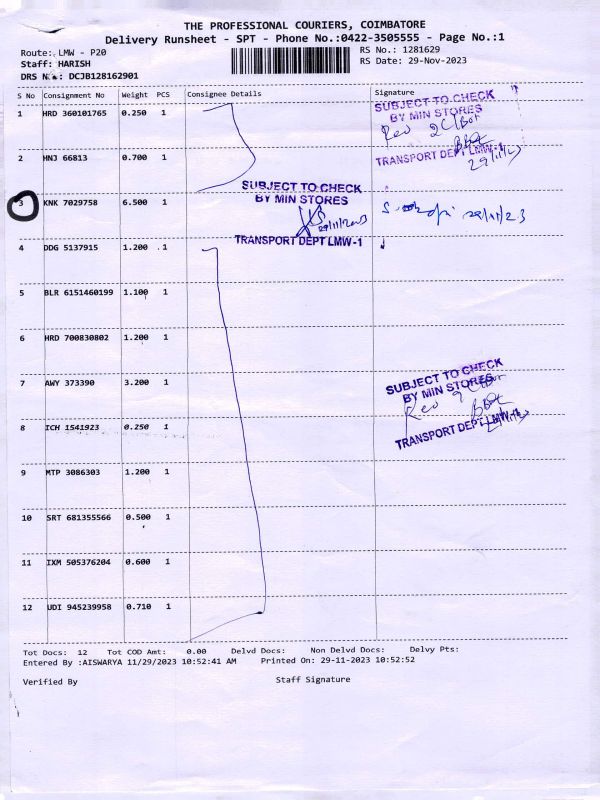 THE PROFESSIONAL COURIERS, COIMBATORE
Delivery Runsheet - SPT - Phone No.:0422-3505555 - Page No.:1
Route: LMW - P20
RS No.: 1281629
Staff: HARISH
RS Date: 29-Nov-2023
DRS No.: DCJB128162901
S No Consignment No Weight PCS Consignee Details Signature
1 HRD 360101765 0.250 1
SUBJECT TO CHECK
BY MIN STORES
TRANSPORT DEPT LMW-1
29/11/23
2 HNJ 66813 0.700 1
SUBJECT TO CHECK
BY MIN STORES
29/11/2023
TRANSPORT DEPT LMW-1
3 KNK 7029758 6.500 1
29/11/23
4 DDG 5137915 1.200 1
5 BLR 6151460199 1.100 1
6 HRD 700830802 1.200 1
7 AWY 373390 3.200 1
SUBJECT TO CHECK
BY MIN STORES
TRANSPORT DEPT LMW-1
8 ICH 1541923 0.250 1
9 MTP 3086303 1.200 1
10 SRT 681355566 0.500 1
11 IXM 505376204 0.600 1
12 UDI 945239958 0.710 1
Tot Docs: 12 Tot COD Amt: 0.00 Delvd Docs: Non Delvd Docs: Delvy Pts:
Entered By :AISWARYA 11/29/2023 10:52:41 AM Printed On: 29-11-2023 10:52:52
Verified By Staff Signature